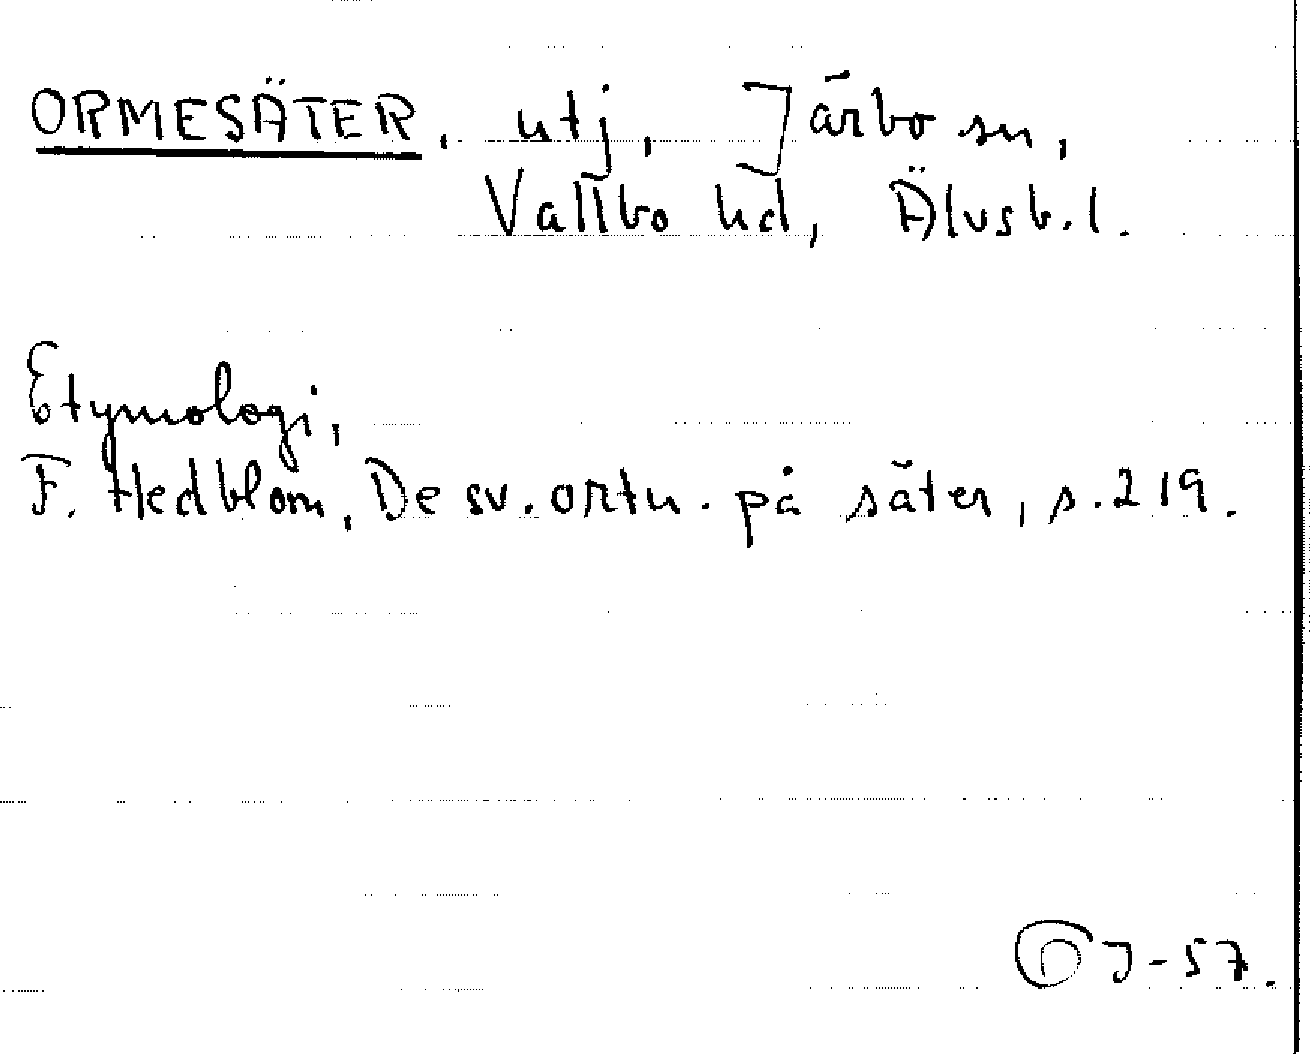 ORMESÄTER, utj, Järbo sn,
Vallbo hd, Älvsb.l.
Etymologi,
F. Hedblom, De sv. ortn. på säter, s. 219.
J-57.